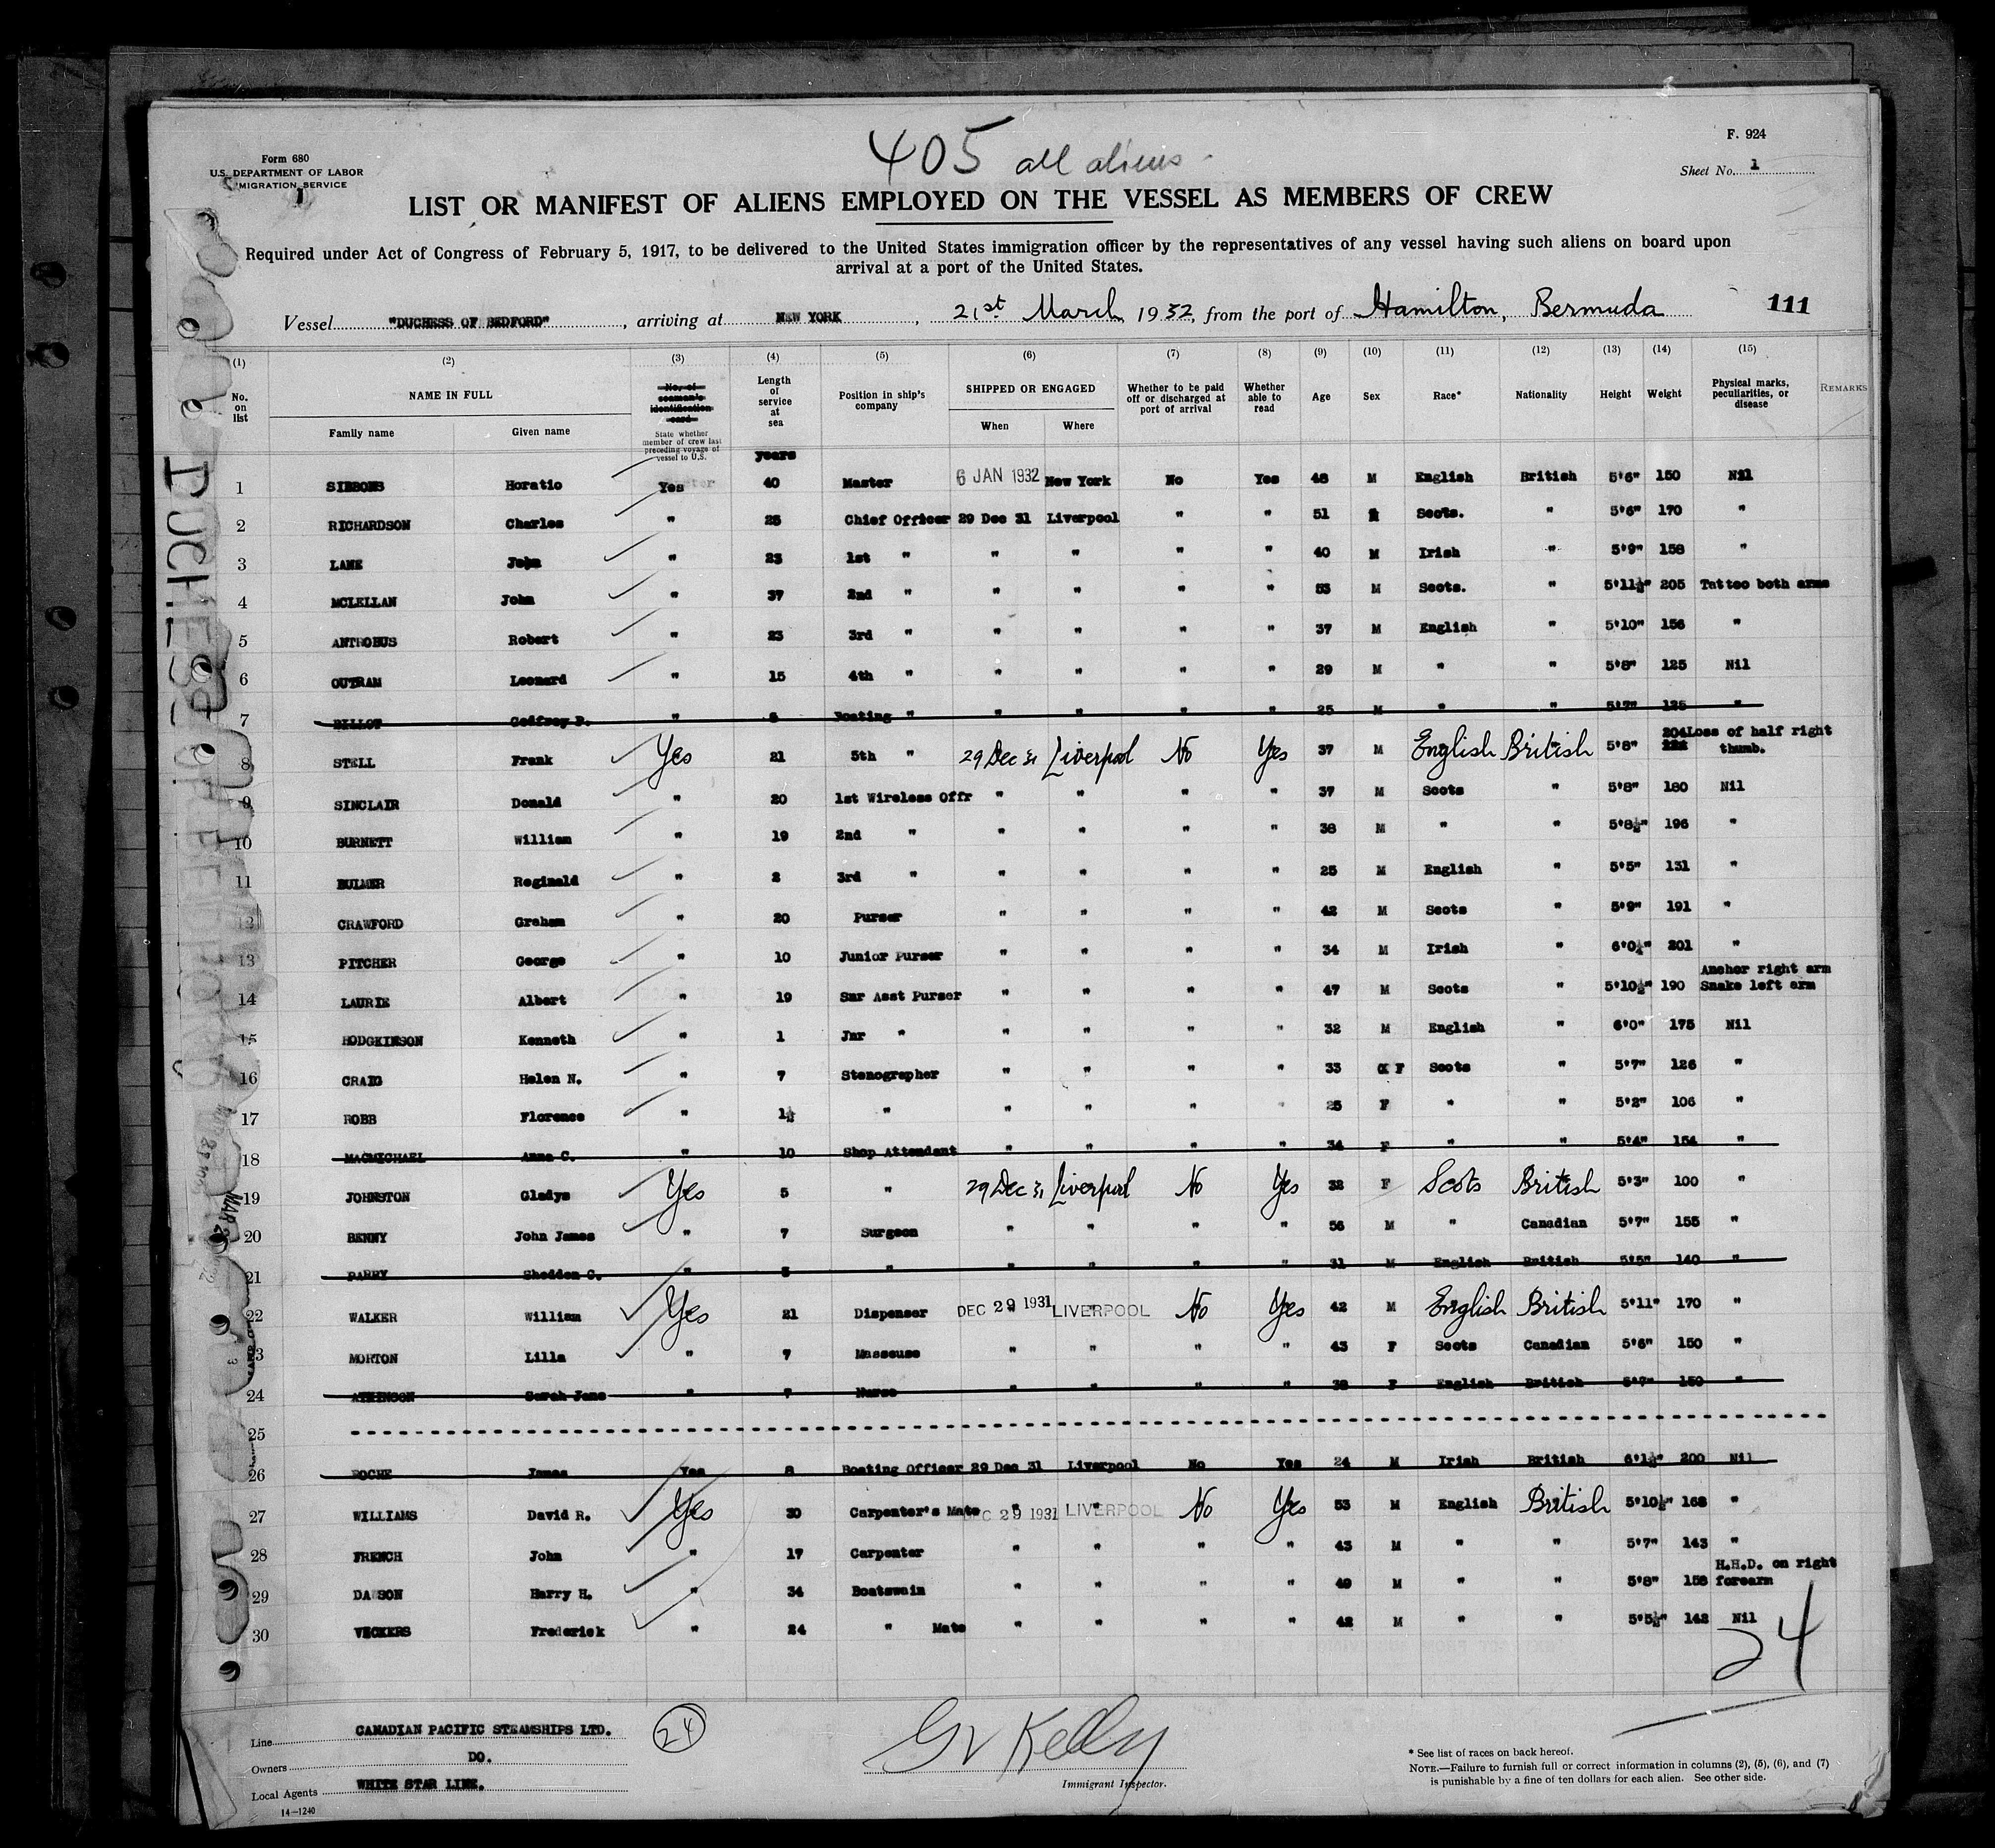 405 all aliens
F. 924
Form 680
U.S. DEPARTMENT OF LABOR
IMMIGRATION SERVICE
Sheet No. 1
LIST OR MANIFEST OF ALIENS EMPLOYED ON THE VESSEL AS MEMBERS OF CREW
Required under Act of Congress of February 5, 1917, to be delivered to the United States immigration officer by the representatives of any vessel having such aliens on board upon
arrival at a port of the United States.
Vessel "DUCHESS OF BEDFORD", arriving at NEW YORK, 21st March 1932, from the port of Hamilton, Bermuda 111
(1) (2) (3) (4) (5) (6) (7) (8) (9) (10) (11) (12) (13) (14) (15)
No. on list NAME IN FULL Family name Given name No. of seaman's identification card State whether member of crew last preceding voyage of vessel to U.S. Length of service at sea Position in ship's company SHIPPED OR ENGAGED When Where Whether to be paid off or discharged at port of arrival Whether able to read Age Sex Race* Nationality Height Weight Physical marks, peculiarities, or disease REMARKS
years
1 SIBBONS Horatio Yes 40 Master 6 JAN 1932 New York No Yes 48 M English British 5'6" 150 Nil
2 RICHARDSON Charles " 25 Chief Officer 29 Dec 31 Liverpool " " 51 M Scots. " 5'6" 170 "
3 LANE John " 23 1st " " " " " 40 M Irish " 5'9" 158 "
4 MCLELLAN John " 37 2nd " " " " " 53 M Scots. " 5'11½" 205 Tattoo both arms
5 ANTROBUS Robert " 23 3rd " " " " " 37 M English " 5'10" 156 "
6 OUTRAM Leonard " 15 4th " " " " " 29 M " " 5'8" 125 Nil
7 BILLOT Godfrey P. " Boating " " " " " 25 M " " 5'7" 125 "
8 STELL Frank Yes 21 5th " 29 Dec 31 Liverpool No Yes 37 M English British 5'8" 204 Loss of half right thumb.
9 SINCLAIR Donald " 20 1st Wireless Offr " " " " 37 M Scots " 5'8" 180 Nil
10 BURNETT William " 19 2nd " " " " " 38 M " " 5'8½" 196 "
11 BULMER Reginald " 2 3rd " " " " " 25 M English " 5'5" 131 "
12 CRAWFORD Graham " 20 Purser " " " " 42 M Scots " 5'9" 191 "
13 PITCHER George " 10 Junior Purser " " " " 34 M Irish " 6'0¼" 201 "
14 LAURIE Albert " 19 Snr Asst Purser " " " " 47 M Scots " 5'10½" 190 Anchor right arm Snake left arm
15 HODGKINSON Kenneth " 1 Jnr " " " " " 32 M English " 6'0" 175 Nil
16 CRAIG Helen N. " 7 Stenographer " " " " 33 F Scots " 5'7" 126 "
17 ROBB Florence " 1½ " " " " " 25 F " " 5'2" 106 "
18 MACMICHAEL Anna C. " 10 Shop Attendant " " " " 34 F " " 5'4" 154 "
19 JOHNSTON Gladys Yes 5 " 29 Dec 31 Liverpool No Yes 32 F Scots British 5'3" 100 "
20 BENNY John James " 7 Surgeon " " " " 56 M " Canadian 5'7" 155 "
21 PARRY Sheddon C. " " " " " " 31 M English British 5'5" 140 "
22 WALKER William Yes 21 Dispenser DEC 29 1931 LIVERPOOL No Yes 42 M English British 5'11" 170 "
23 MORTON Lilla " 7 Masseuse " " " " 43 F Scots Canadian 5'6" 150 "
24 ATKINSON Sarah Jane " 7 Nurse " " " " 38 F English British 5'7" 150 "
25
26 ROCHE James Yes 8 Boating Officer 29 Dec 31 Liverpool No Yes 24 M Irish British 6'1½" 200 Nil
27 WILLIAMS David R. Yes 30 Carpenter's Mate DEC 29 1931 LIVERPOOL No Yes 53 M English British 5'10½" 168 "
28 FRENCH John " 17 Carpenter " " " " 43 M " " 5'7" 143 "
29 DAWSON Harry H. " 34 Boatswain " " " " 49 M " " 5'8" 158 H.H.D. on right forearm
30 VICKERS Frederick " 24 " Mate " " " " 42 M " " 5'5½" 142 Nil
24
Line CANADIAN PACIFIC STEAMSHIPS LTD.
24
Owners DO.
Local Agents WHITE STAR LINE.
14—1240
GV Kelly
Immigrant Inspector.
* See list of races on back hereof.
NOTE.—Failure to furnish full or correct information in columns (2), (5), (6), and (7)
is punishable by a fine of ten dollars for each alien. See other side.
DUCHESS OF BEDFORD